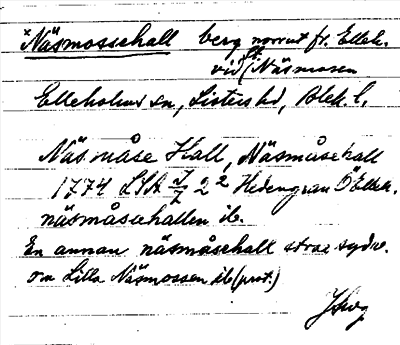 *Näsmossehall berg norrut fr. Elleh.
vid St. Näsmossen
Elleholms sn, Listers hd, Blek. l.
Näsmåse Hall, Näsmåsehall
1774 LSA 2² Hedengran Ö Elleh.
näsmåsehallen ib.
En annan näsmåsehall strax sydv.
om Lilla Näsmossen ib (prot.)